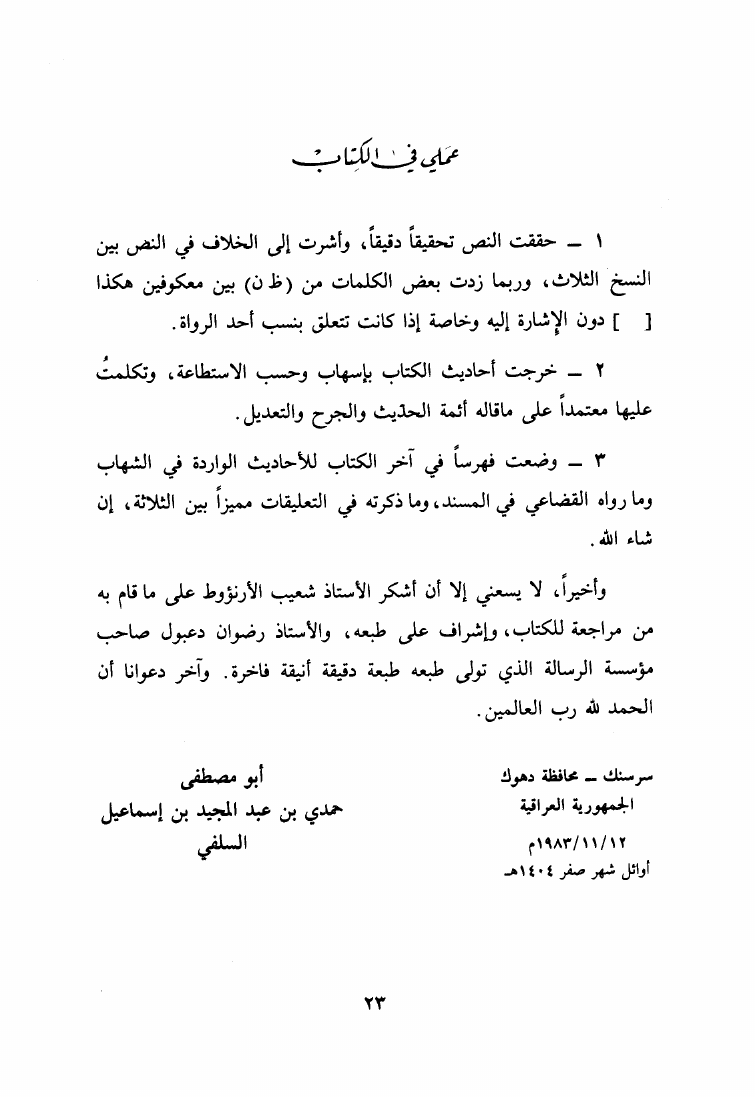 عملي في الكتاب
١ ــ حققت النص تحقيقاً دقيقاً، وأشرت إلى الخلاف في النص بين
النسخ الثلاث، وربما زدت بعض الكلمات من (ظ ن) بين معكوفين هكذا
[ ] دون الإِشارة إليه وخاصة إذا كانت تتعلق بنسب أحد الرواة.
٢ ــ خرجت أحاديث الكتاب بإسهاب وحسب الاستطاعة، وتكلمتُ
عليها معتمداً على ماقاله أئمة الحديث والجرح والتعديل.
٣ ــ وضعت فهرساً في آخر الكتاب للأحاديث الواردة في الشهاب
وما رواه القضاعي في المسند، وما ذكرته في التعليقات مميزاً بين الثلاثة، إن
شاء الله.
وأخيراً، لا يسعني إلا أن أشكر الأستاذ شعيب الأرنؤوط على ما قام به
من مراجعة للكتاب، وإشراف على طبعه، والأستاذ رضوان دعبول صاحب
مؤسسة الرسالة الذي تولى طبعه طبعة دقيقة أنيقة فاخرة. وآخر دعوانا أن
الحمد لله رب العالمين.
سرسنك ــ محافظة دهوك
الجمهورية العراقية
١٩٨٣/١١/١٢م
أوائل شهر صفر ١٤٠٤هـ
أبو مصطفى
حمدي بن عبد المجيد بن إسماعيل
السلفي
٢٣